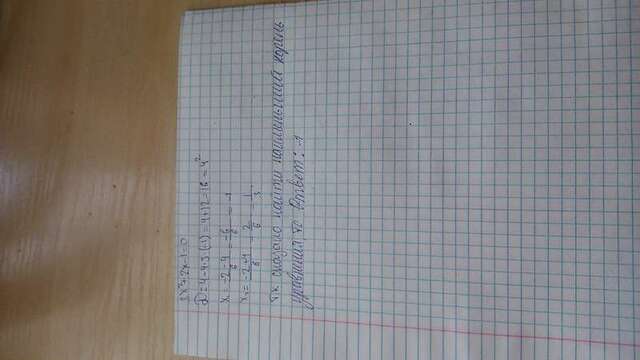 3x²+2x-1=0
D=4-4·3·(-1)=4+12=16=4²
x₁=-2-4/6=-6/6=-1
x₂=-2+4/6=2/6=1/3
Т.к. сказано найти наименьший корень
уравнения, то Ответ: -1